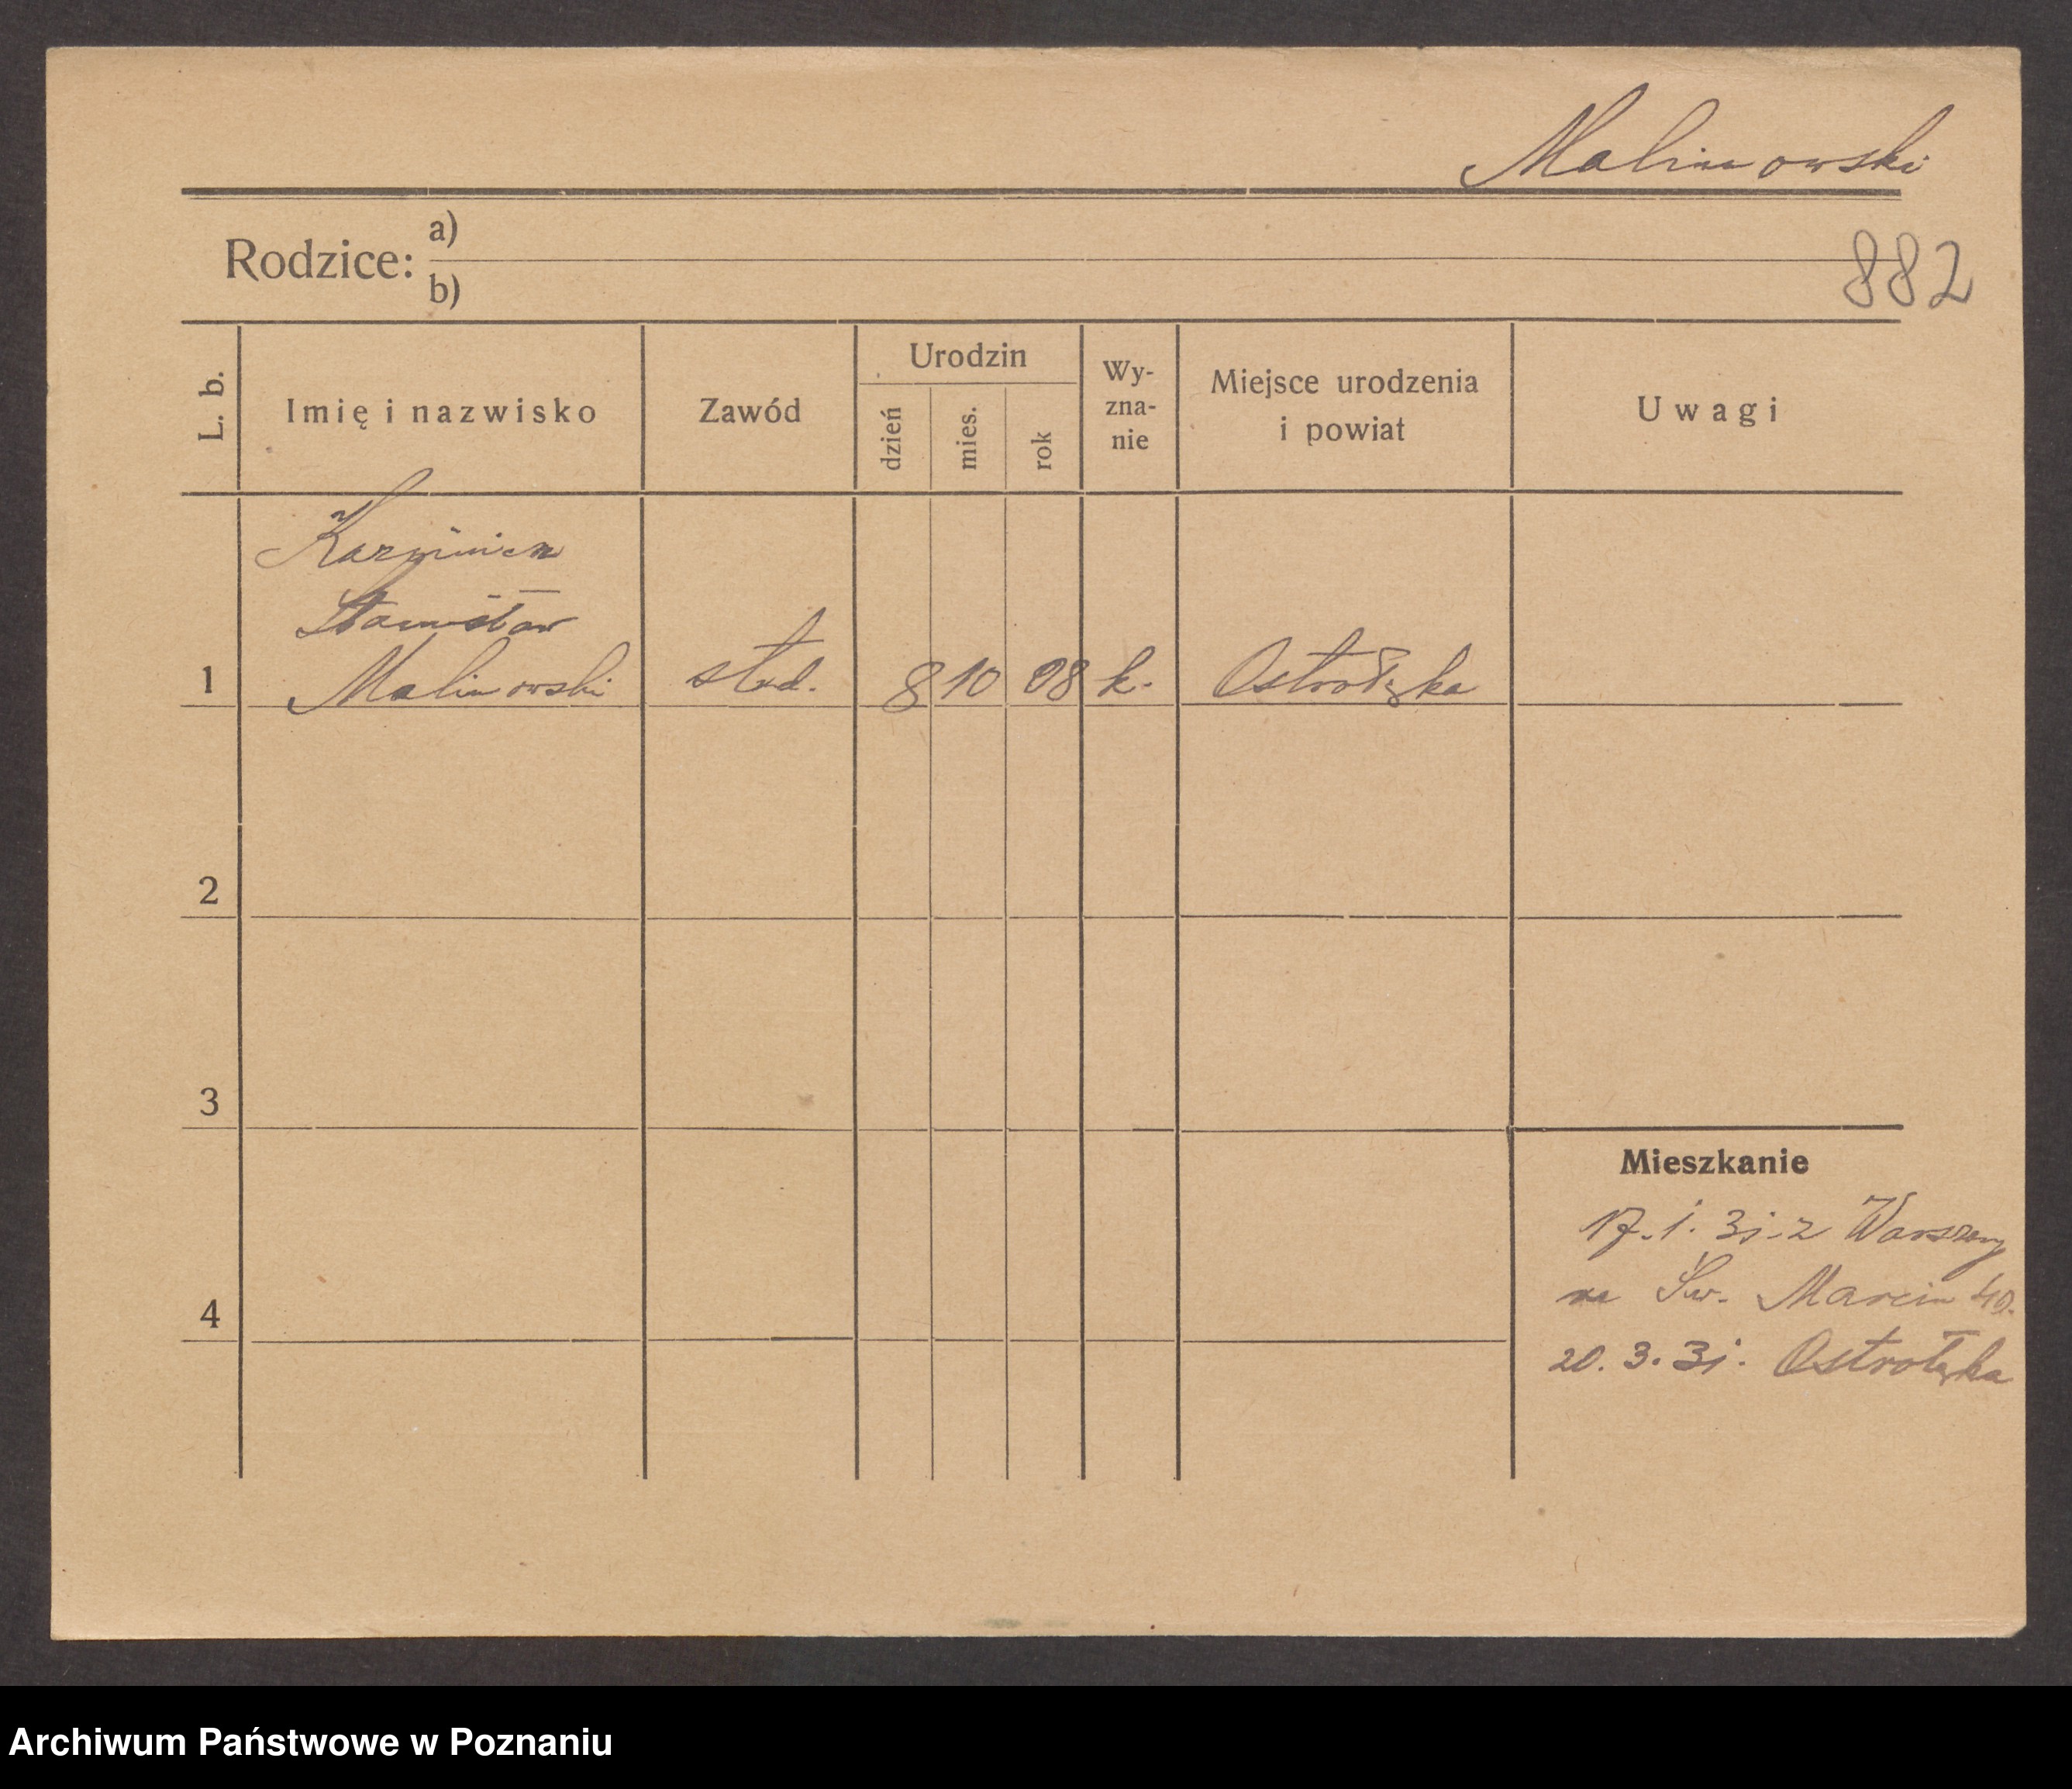 Malinowski
Rodzice: a)
b)
882
L. b.
Imię i nazwisko
Zawód
Urodzin
dzień
mies.
rok
Wy-
zna-
nie
Miejsce urodzenia
i powiat
Uwagi
Kazimierz
Stanisław
1 Malinowski stud. 8 10 08 k. Ostrołęka
2
3
Mieszkanie
17. 1. 31. z Warszawy
na Św. Marcin 40.
4
20. 3. 31. Ostrołęka
Archiwum Państwowe w Poznaniu